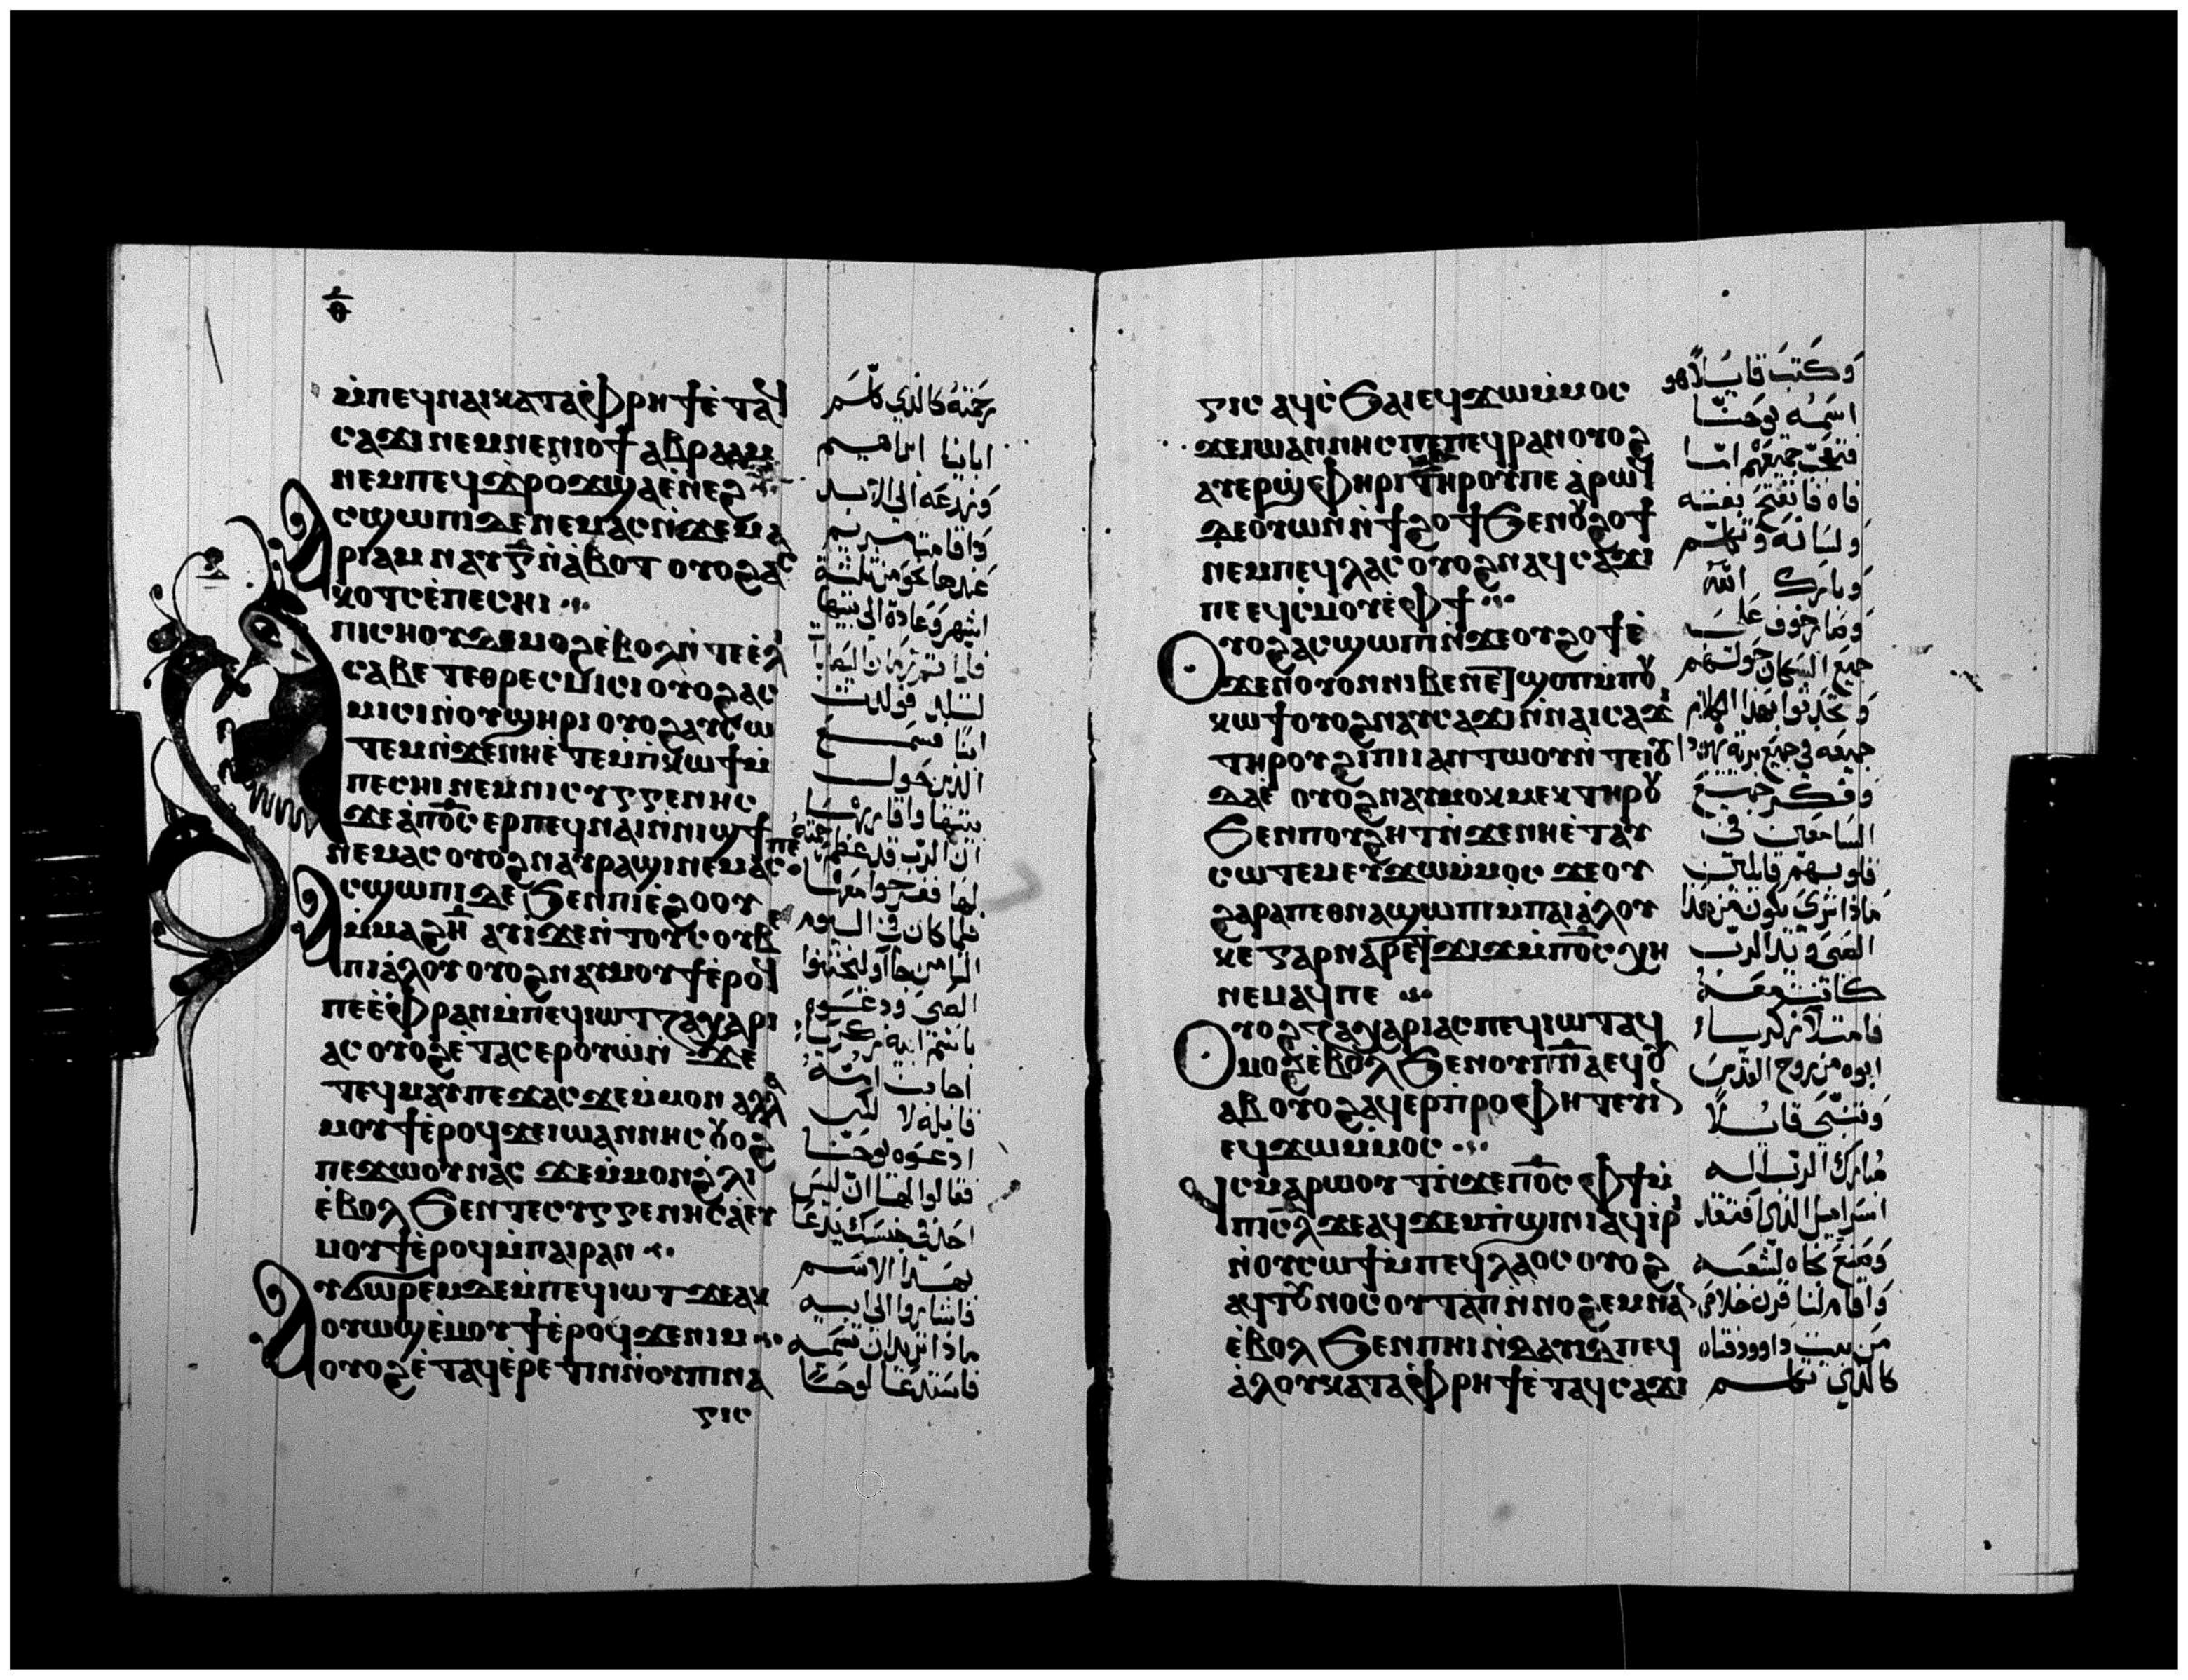 ⲑ
ⲙ̇ⲡⲉϥⲛⲁⲓ ⲕⲁⲧⲁ ⲫⲣⲏϯ ⲉ̇ⲧⲁϥ
ⲥⲁϫⲓ ⲛⲉⲙ ⲛⲉⲛⲓⲟϯ ⲁⲃⲣⲁⲁⲙ
ⲛⲉⲙ ⲡⲉϥϫ̇ⲣⲟϫ ϣⲁ ⲉ̇ⲛⲉϩ
ⲁⲥϣⲱⲡⲓ ⲇⲉ ⲛⲉⲙⲁⲥ ⲛ̇ϫⲉ ⲙⲁ
ⲣⲓⲁⲙ ⲛⲁⲩ ⲅ̅ ⲛ̇ⲁ̇ⲃⲟⲧ ⲟⲩⲟϩ ⲁⲥ
ⲕⲟⲧⲥ ⲉ̇ⲡⲉⲥⲏⲓ
ⲡⲓⲥⲏⲟⲩ ⲇⲉ ⲙⲟϩ ⲉ̇ⲃⲟⲗ ⲛ̇ⲧⲉ ⲉ̇ⲗⲓ
ⲥⲁⲃⲉⲧ ⲉⲑⲣⲉⲥⲙⲓⲥⲓ ⲟⲩⲟϩ ⲁⲥ
ⲙⲓⲥⲓ ⲛ̇ⲟⲩϣⲏⲣⲓ ⲟⲩⲟϩ ⲁⲩⲥⲱ
ⲧⲉⲙ ⲛ̇ϫⲉ ⲛⲏⲉ̇ⲧⲉⲙⲡ̇ⲕⲱϯ ⲙ̇
ⲡⲉⲥⲏⲓ ⲛⲉⲙ ⲛⲓⲥⲩⲅⲅⲉⲛⲏⲥ
ϫⲉ ⲁ̇ ⲡⲟ̅ⲥ̅ ⲉⲣ ⲡⲉϥⲛⲁⲓ ⲛ̇ⲛⲓϣϯ ⲡⲉ
ⲛⲉⲙⲁⲥ ⲟⲩⲟϩ ⲛⲁⲩⲣⲁϣⲓ ⲛⲉⲙⲁⲥ
ⲁⲥϣⲱⲡⲓ ⲇⲉ ϧⲉⲛ ⲡⲓⲉ̇ϩⲟⲟⲩ
ⲙ̇ⲙⲁϩ ⲏ̅ ⲁⲩⲓ̀ ϫⲉ ⲛ̇ⲧⲟⲩⲥⲟⲩⲃⲉ
ⲡⲓⲁ̇ⲗⲟⲩ ⲟⲩⲟϩ ⲛⲁⲩⲙⲟⲩϯ ⲉ̇ⲣⲟϥ
ⲡⲉ ⲉ̇ⲫⲣⲁⲛ ⲙ̇ⲡⲉϥⲓⲱⲧ ⲍⲁⲭⲁⲣⲓ
ⲁⲥ ⲟⲩⲟϩ ⲉⲧⲁⲥⲉⲣⲟⲩⲱ̇ ⲛ̇ϫⲉ
ⲧⲉϥⲙⲁⲩ ⲡⲉϫⲁⲥ ϫⲉ ⲙ̇ⲙⲟⲛ ⲁⲗⲗⲁ
ⲙⲟⲩϯ ⲉ̇ⲣⲟϥ ϫⲉ ⲓⲱⲁⲛⲛⲏⲥ ⲟⲩⲟϩ
ⲡⲉϫⲱⲟⲩ ⲛⲁⲥ ϫⲉ ⲙ̇ⲙⲟⲛ ϩ̇ⲗⲓ
ⲉ̇ⲃⲟⲗ ϧⲉⲛ ⲧⲉⲥⲩⲅⲅⲉⲛⲏⲥ ⲉⲁ̇ⲩ
ⲙⲟⲩϯ ⲉ̇ⲣⲟϥ ⲙ̇ⲡⲁⲓⲣⲁⲛ
ⲁⲩϭⲱⲣⲉⲙ ⲇⲉ ⲙ̇ⲡⲉϥⲓⲱⲧ ϫⲉ ⲁⲕ
ⲟⲩⲱϣ ⲉ̇ⲙⲟⲩϯ ⲉ̇ⲣⲟϥ ϫⲉ ⲛⲓⲙ
ⲟⲩⲟϩ ⲉ̇ⲧⲁϥⲉ̇ⲣⲉⲧⲓⲛ ⲛ̇ⲟⲩⲡⲓⲛⲁ
ⲅⲓⲥ
رحمته كالذي كلم
ابانا ابراهيم
وزرعه الى الابد
واقامت مريم
عندها نحو من ثلثة
اشهر وعادة الى بيتها
فلما تم زمان اليصابات
لتلد فولدت
ابنا فسمع
الذين حول
بيتها واقاربها
ان الرب قد عظم رحمته
لها ففرحوا معها
فلما كان في اليوم
الثامن جاوا ليختنوا
الصبي ودعوه
باسم ابيه زكريا
اجابت امه
قايله لا لكن
ادعوه يوحنا
فقالوا لها ان ليس
احد في جنسك يدعا
بهذا الاسم
فاشاروا الى ابيه
ماذا تريد ان تسميه
فاستدعا لوحا
ⲅⲓⲥ ⲁϥⲥ̇ϧⲁⲓ ⲉϥϫⲱ ⲙ̇ⲙⲟⲥ
ϫⲉ ⲓⲱⲁⲛⲛⲏⲥ ⲡⲉ ⲡⲉϥⲣⲁⲛ ⲟⲩⲟϩ
ⲁⲩⲉⲣϣ̇ⲫⲏⲣⲓ ⲧⲏⲣⲟⲩ ⲡⲉ ⲁ̇ⲣⲱϥ
ⲇⲉ ⲟ̇ⲩⲱⲛ ⲛ̇ϯϩⲟϯ ϧⲉⲛ ⲟⲩϩⲟϯ
ⲛⲉⲙ ⲡⲉϥⲗⲁⲥ ⲟⲩⲟϩ ⲛⲁϥⲥⲁϫⲓ
ⲡⲉ ⲉϥⲥ̇ⲙⲟⲩ ⲉ̇ⲫϯ
ⲟⲩⲟϩ ⲁⲥϣⲱⲡⲓ ⲛ̇ϫⲉ ⲟⲩϩⲟϯ ⲉ̇
ϫⲉⲛ ⲟⲩⲟⲛ ⲛⲓⲃⲉⲛ ⲉⲧϣⲟⲡ ⲙ̇ⲡⲟⲩ
ⲕⲱϯ ⲟⲩⲟϩ ⲛⲁⲩⲥⲁϫⲓ ⲛ̇ⲛⲁⲓⲥⲁϫⲓ
ⲧⲏⲣⲟⲩ ϩⲓ ⲡⲓⲁⲛⲧⲱⲟⲩ ⲛ̇ⲧⲉ ⲓⲟⲩ
ⲇⲁⲉ̇ ⲟⲩⲟϩ ⲛⲁⲩⲙⲟⲕⲙⲉⲕ ⲧⲏⲣⲟⲩ
ϧⲉⲛ ⲡⲟⲩϩⲏⲧ ⲛ̇ϫⲉ ⲛⲏⲉ̇ⲧⲁⲩ
ⲥⲱⲧⲉⲙ ⲉⲩϫⲱ ⲙ̇ⲙⲟⲥ ϫⲉ ⲟⲩ
ϩⲁⲣⲁ ⲡⲉⲑⲛⲁϣⲱⲡⲓ ⲙ̇ⲡⲁⲓⲁ̇ⲗⲟⲩ
ⲕⲉ ⲅⲁⲣ ⲛⲁⲣⲉ ⲧϫⲓϫ ⲙ̇ⲡⲟ̅ⲥ̅ ⲭⲏ
ⲛⲉⲙⲁϥ ⲡⲉ
ⲟⲩⲟϩ ⲍⲁⲭⲁⲣⲓⲁⲥ ⲡⲉϥⲓⲱⲧ ⲁϥ
ⲙⲟϩ ⲉ̇ⲃⲟⲗ ϧⲉⲛ ⲟⲩⲡ̅ⲛ̅ⲁ ⲉϥⲟⲩ
ⲁⲃ ⲟⲩⲟϩ ⲁϥⲉⲣⲡⲣⲟⲫⲏⲧⲉⲩⲓⲛ
ⲉϥϫⲱ ⲙ̇ⲙⲟⲥ
ϥⲥⲙⲁⲣⲱⲟⲩⲧ ⲛ̇ϫⲉ ⲡⲟ̅ⲥ̅ ⲫϯ ⲙ̇
ⲡⲓⲥ̅ⲗ̅ ϫⲉ ⲁϥϫⲉⲙⲡ̇ϣⲓⲛⲓ ⲁϥⲓ̇ⲣⲓ
ⲛ̇ⲟⲩⲥⲱϯ ⲙ̇ⲡⲉϥⲗⲁⲟⲥ ⲟⲩⲟϩ
ⲁϥⲧⲟⲩⲛⲟⲥ ⲟⲩⲧⲁⲡ ⲛ̇ⲛⲟϩⲉⲙ ⲛⲁⲛ
ⲉ̇ⲃⲟⲗ ϧⲉⲛ ⲡⲏⲓ ⲛ̇ⲇⲁⲩⲓⲇ ⲡⲉϥ
ⲁ̇ⲗⲟⲩ ⲕⲁⲧⲁ ⲫⲣⲏϯ ⲉ̇ⲧⲁϥⲥⲁϫⲓ
وكتب قايلا هو
اسمه يوحنا
فتعجب جميعهم اما
فاه فانفتح بغته
ولسانه وتكلم
وبارك الله
وصار خوف على
جميع السكان حولهم
وتحدثوا بهذا الكلام
جميعه في جميع برية يهودا
وفكر جميع
السامعين في
قلوبهم قايلين
ماذا ترى يكون من هذا
الصبي ويد الرب
كانت معه
فامتلا زكرياء
ابوه من روح القدس
وتنبى قايلا
مبارك الرب اله
اسراييل الذي افتقد
وصنع نجاه لشعبه
واقام لنا قرن خلاص
من بيت داوود فتاه
كالذي تكلم